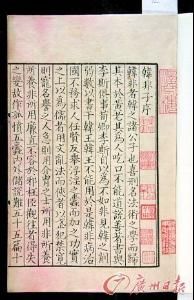 韓非子序
韓非者韓之諸公子也喜刑名法術之學而歸
其本於黃老其為人吃口不能道說善著書與
李斯俱事荀卿李斯自以為不如非見韓之削
弱數以書干韓王韓王不能用於是韓非病治
國不務求人任賢反舉浮淫之蠹而加之功實
之上以為儒者用文亂法而俠者以武犯禁寬
則寵名譽之人急則用介胄之士所用非所養
所養非所用廉直不容於邪枉臣觀往者得失
之變故作孤憤五蠹內外儲說難五十五篇十
廣州日報